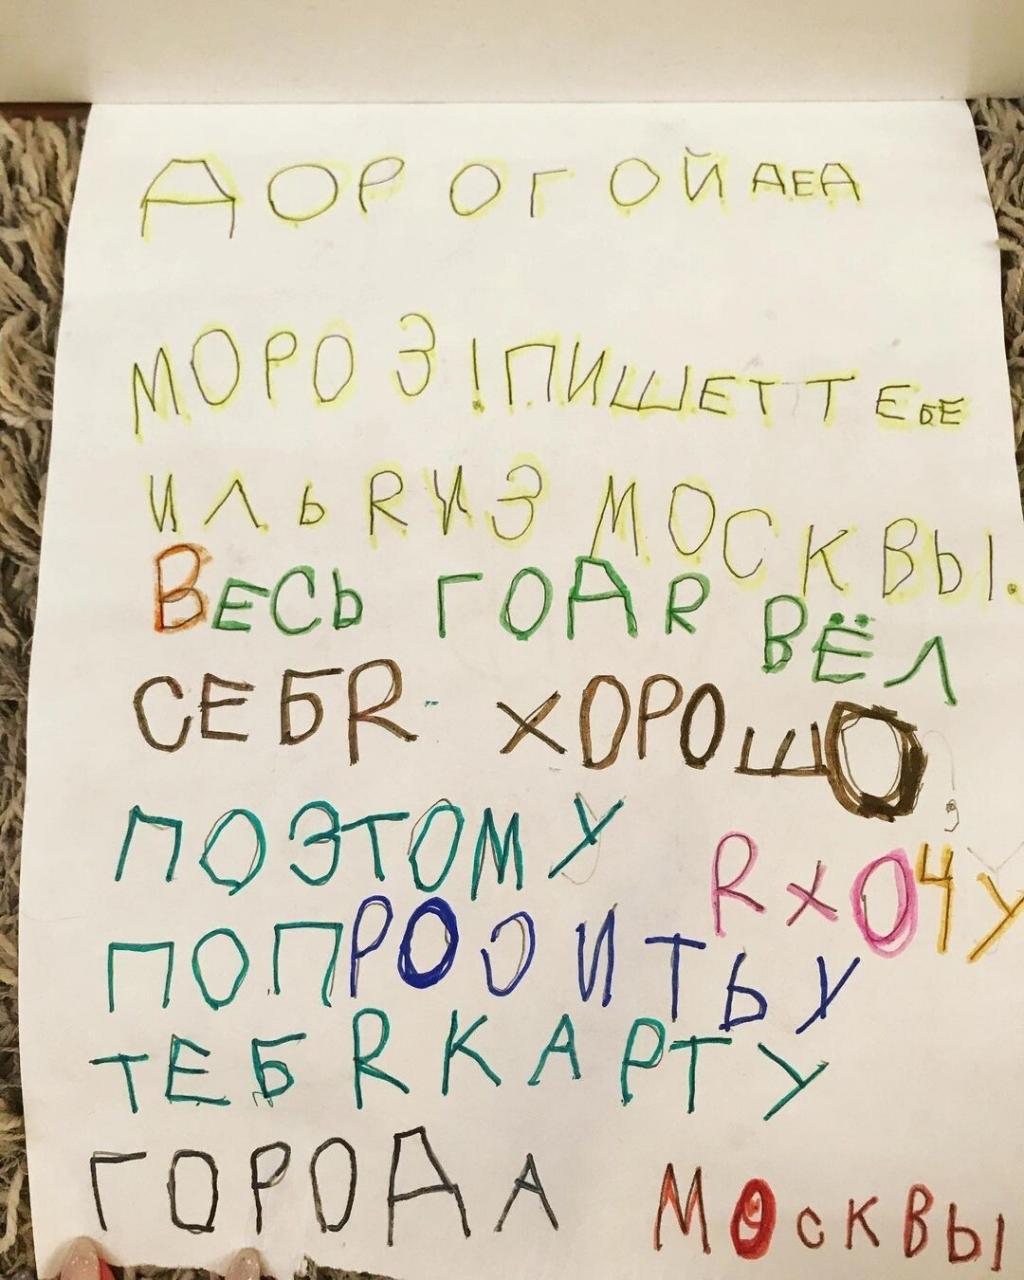 ДОРОГОЙ ДЕД
МОРОЗ! ПИШЕТ ТЕБЕ
ИЛЬЯ ИЗ МОСКВЫ.
ВЕСЬ ГОД Я ВЁЛ
СЕБЯ ХОРОШО,
ПОЭТОМУ Я ХОЧУ
ПОПРОСИТЬ У
ТЕБЯ КАРТУ
ГОРОДА МОСКВЫ